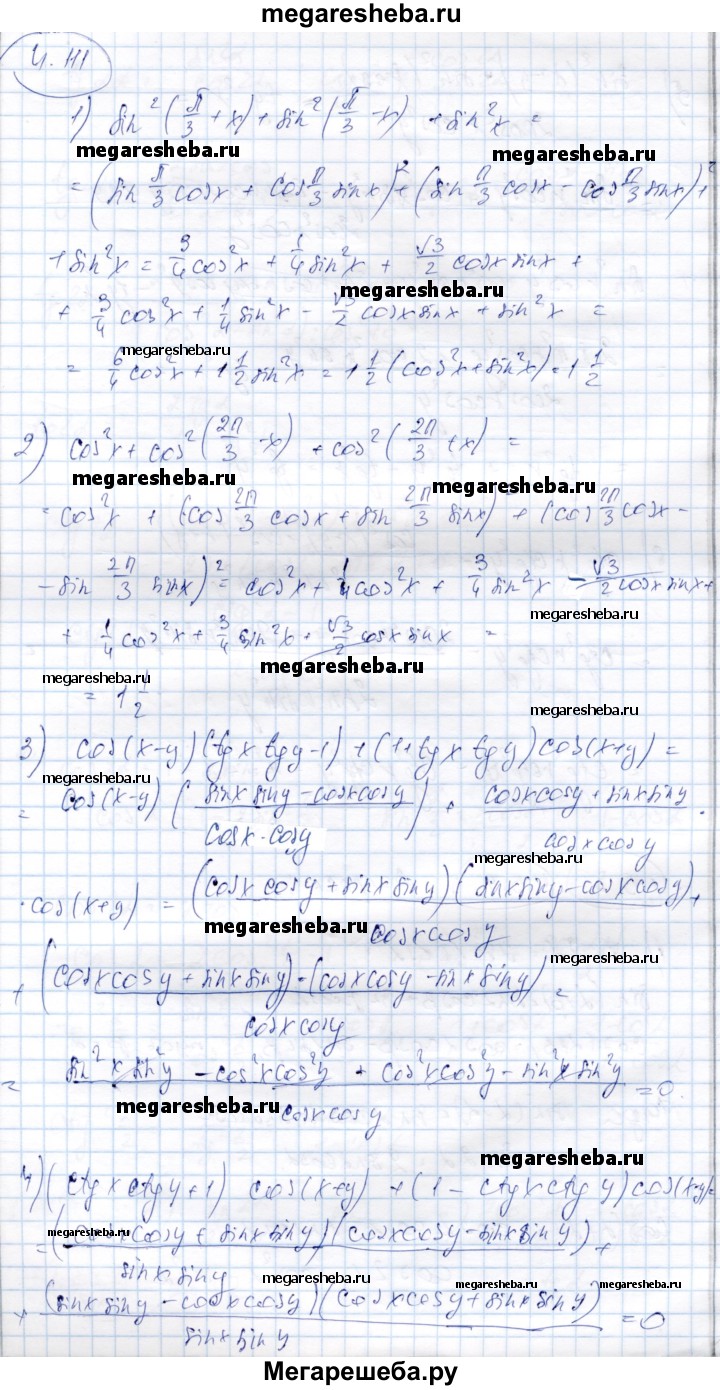 megaresheba.ru
Ч. III
1) sin²(π/3 + x) + sin²(π/3 − x) + sin²x =
megaresheba.ru
megaresheba.ru
= (sin π/3 cosx + cos π/3 sinx)² + (sin π/3 cosx − cos π/3 sinx)² +
+ sin²x = 3/4 cos²x + 1/4 sin²x + √3/2 cosx sinx +
megaresheba.ru
+ 3/4 cos²x + 1/4 sin²x − √3/2 cosx sinx + sin²x =
megaresheba.ru
= 6/4 cos²x + 1 1/2 sin²x = 1 1/2 (cos²x + sin²x) = 1 1/2
2) cos²x + cos²(2π/3 − x) + cos²(2π/3 + x) =
megaresheba.ru
megaresheba.ru
= cos²x + (cos 2π/3 cosx + sin 2π/3 sinx)² + (cos 2π/3 cosx −
− sin 2π/3 sinx)² = cos²x + 1/4 cos²x + 3/4 sin²x − √3/2 cosx sinx +
megaresheba.ru
+ 1/4 cos²x + 3/4 sin²x + √3/2 cosx sinx =
megaresheba.ru
megaresheba.ru
= 1 1/2
3) cos(x−y)(tgx tgy −1) + (1+tgx tgy) cos(x+y) =
megaresheba.ru
= cos(x−y) ((sinx siny − cosx cosy)/(cosx · cosy)) + (cosx cosy + sinx siny)/(cosx cosy) ·
megaresheba.ru
· cos(x+y) = ((cosx cosy + sinx siny)(sinx siny − cosx cosy))/(cosx cosy) +
megaresheba.ru
megaresheba.ru
+ ((cosx cosy + sinx siny) · (cosx cosy − sinx siny))/(cosx cosy) =
= (sin²x sin²y − cos²x cos²y + cos²x cos²y − sin²x sin²y)/(cosx cosy) = 0.
megaresheba.ru
megaresheba.ru
4) (ctgx ctgy + 1) cos(x+y) + (1 − ctgx ctgy) cos(x−y) =
= ((cosx cosy + sinx siny)(cosx cosy − sinx siny))/(sinx siny) +
megaresheba.ru
megaresheba.ru
+ ((sinx siny − cosx cosy)(cosx cosy + sinx siny))/(sinx siny) = 0
megaresheba.ru
Мегарешеба.ру